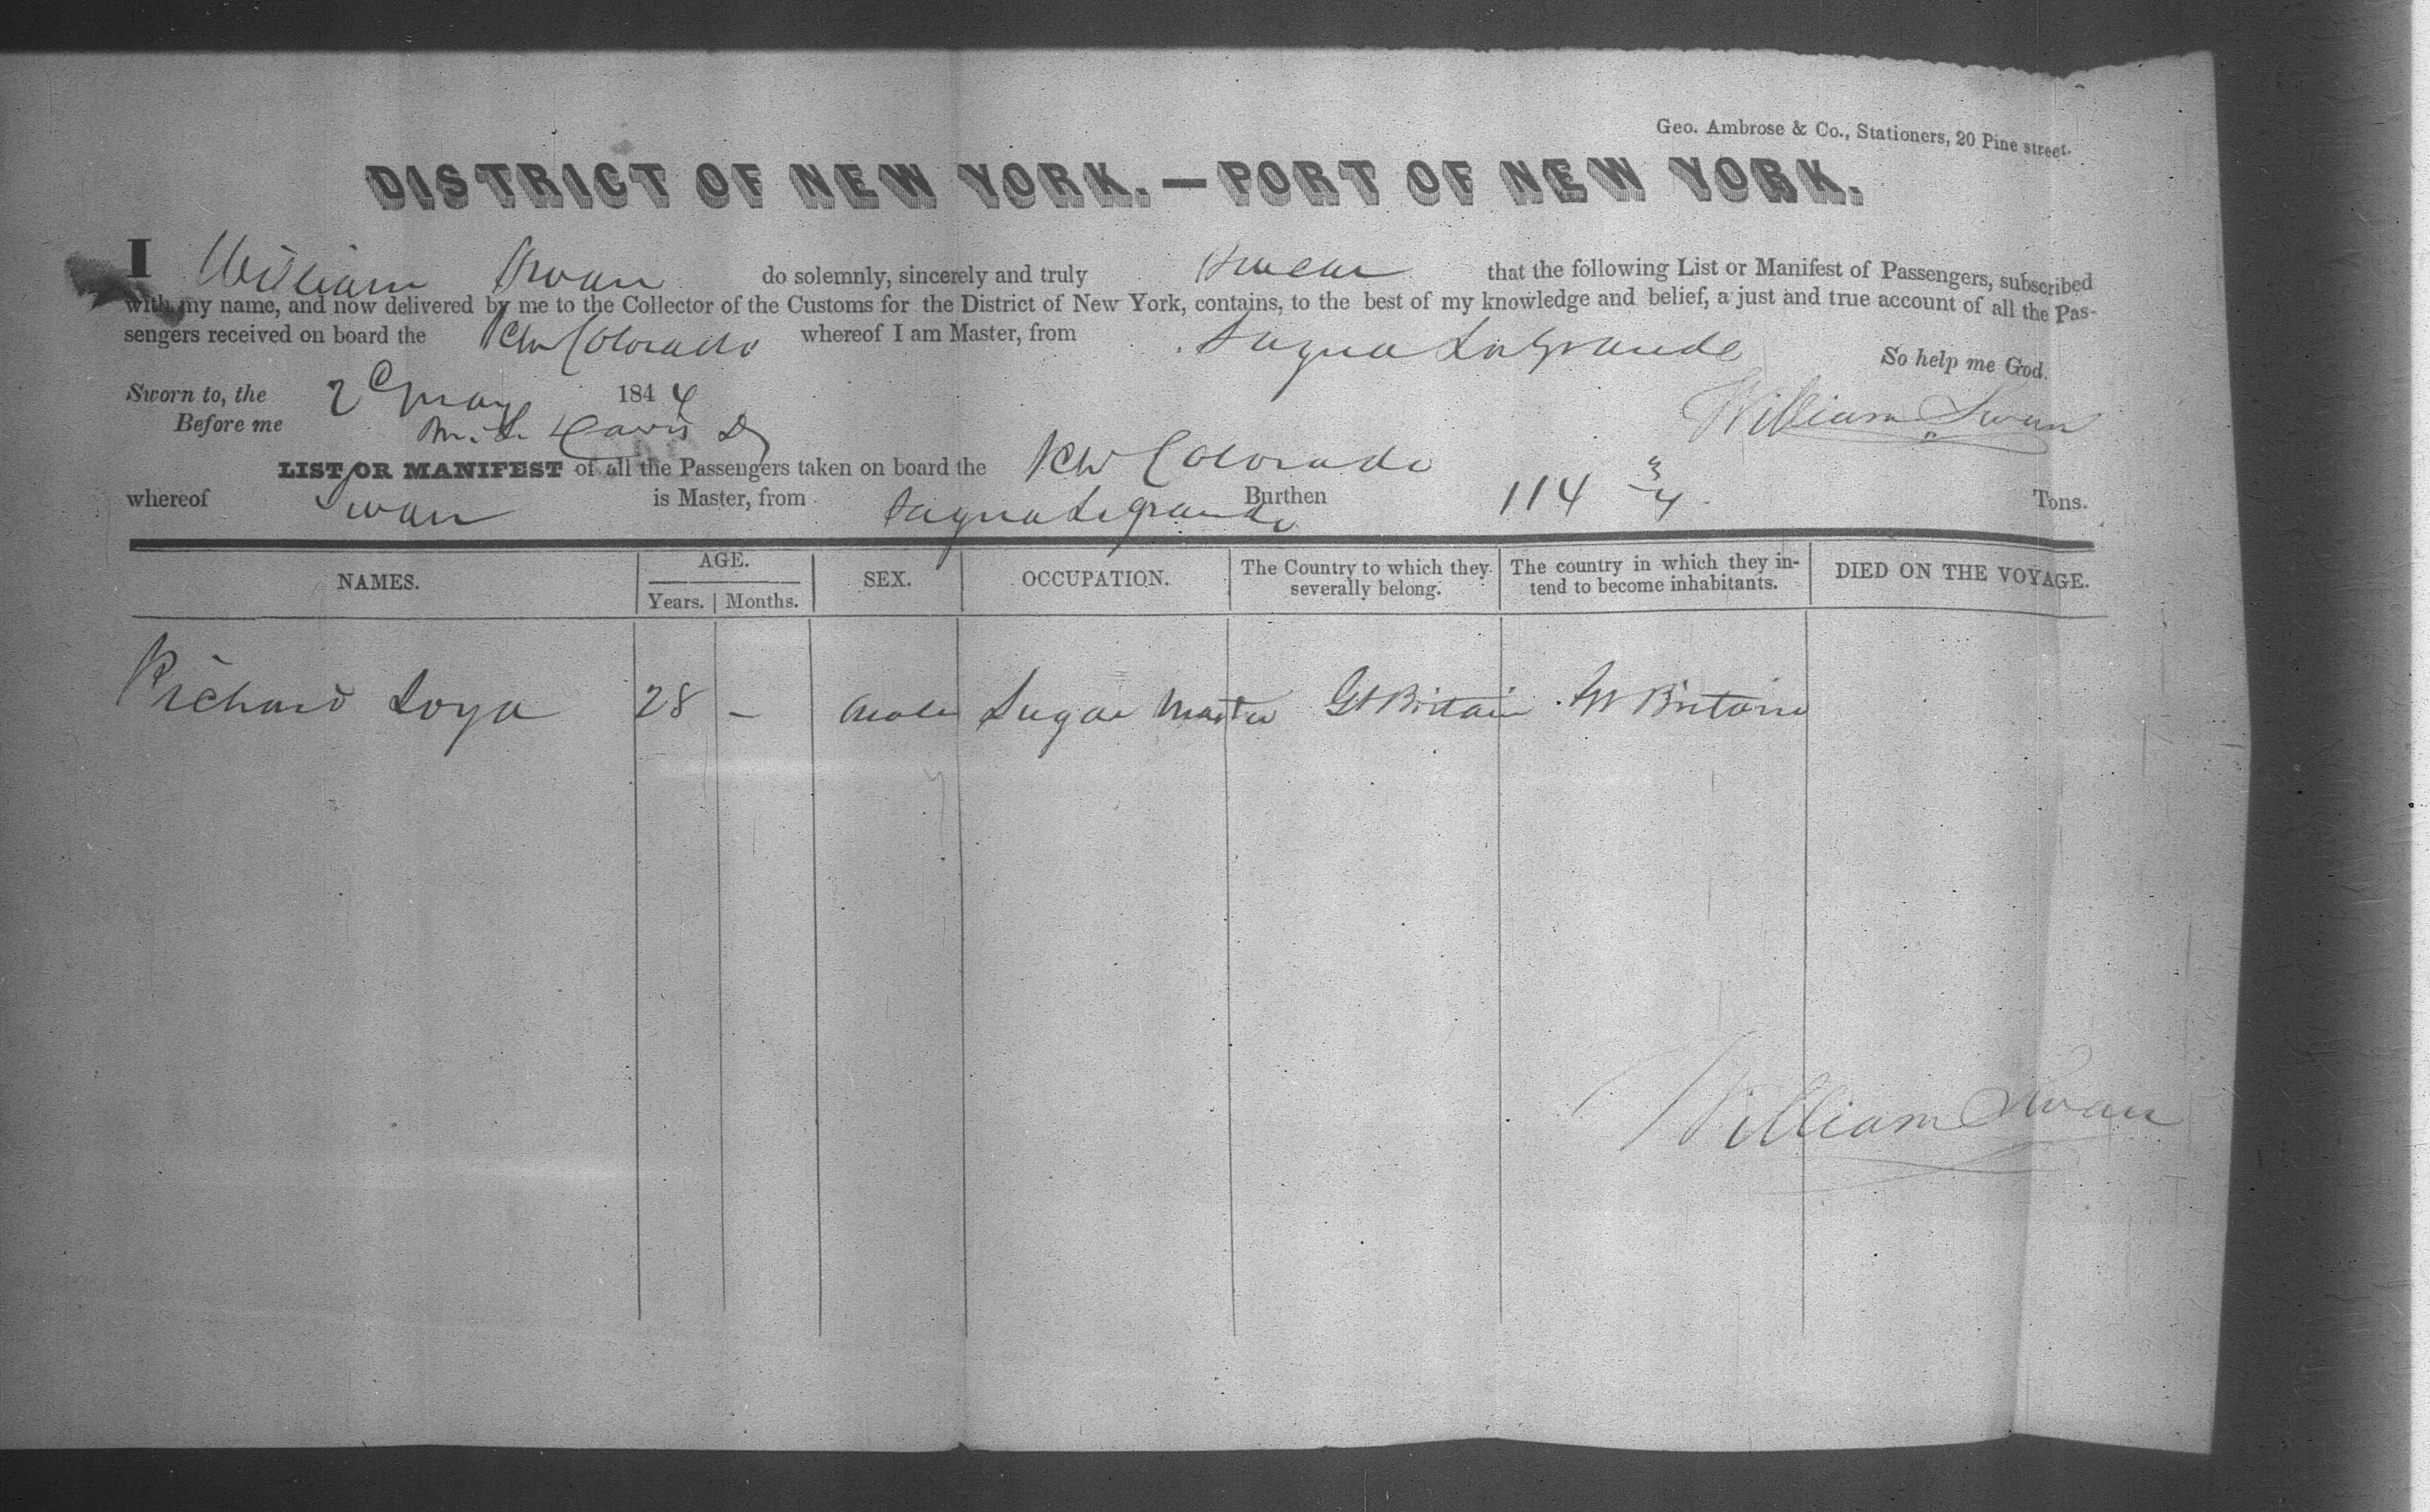 Geo. Ambrose & Co., Stationers, 20 Pine street.
DISTRICT OF NEW YORK.—PORT OF NEW YORK.
I William Swan do solemnly, sincerely and truly Swear that the following List or Manifest of Passengers, subscribed
with my name, and now delivered by me to the Collector of the Customs for the District of New York, contains, to the best of my knowledge and belief, a just and true account of all the Pas-
sengers received on board the Schr Colorado whereof I am Master, from Sagua La Grande So help me God.
Sworn to, the 2 May 1844 William Swan
Before me Davis
LIST OR MANIFEST of all the Passengers taken on board the Schr Colorado
whereof Swan is Master, from Sagua La grande Burthen 114 3/4 Tons.
NAMES. AGE. SEX. OCCUPATION. The Country to which they severally belong. The country in which they in-tend to become inhabitants. DIED ON THE VOYAGE.
Years. Months.
Richard Loya 28 – Male Sugar Master Gt Britain Gt Britain
William Swan